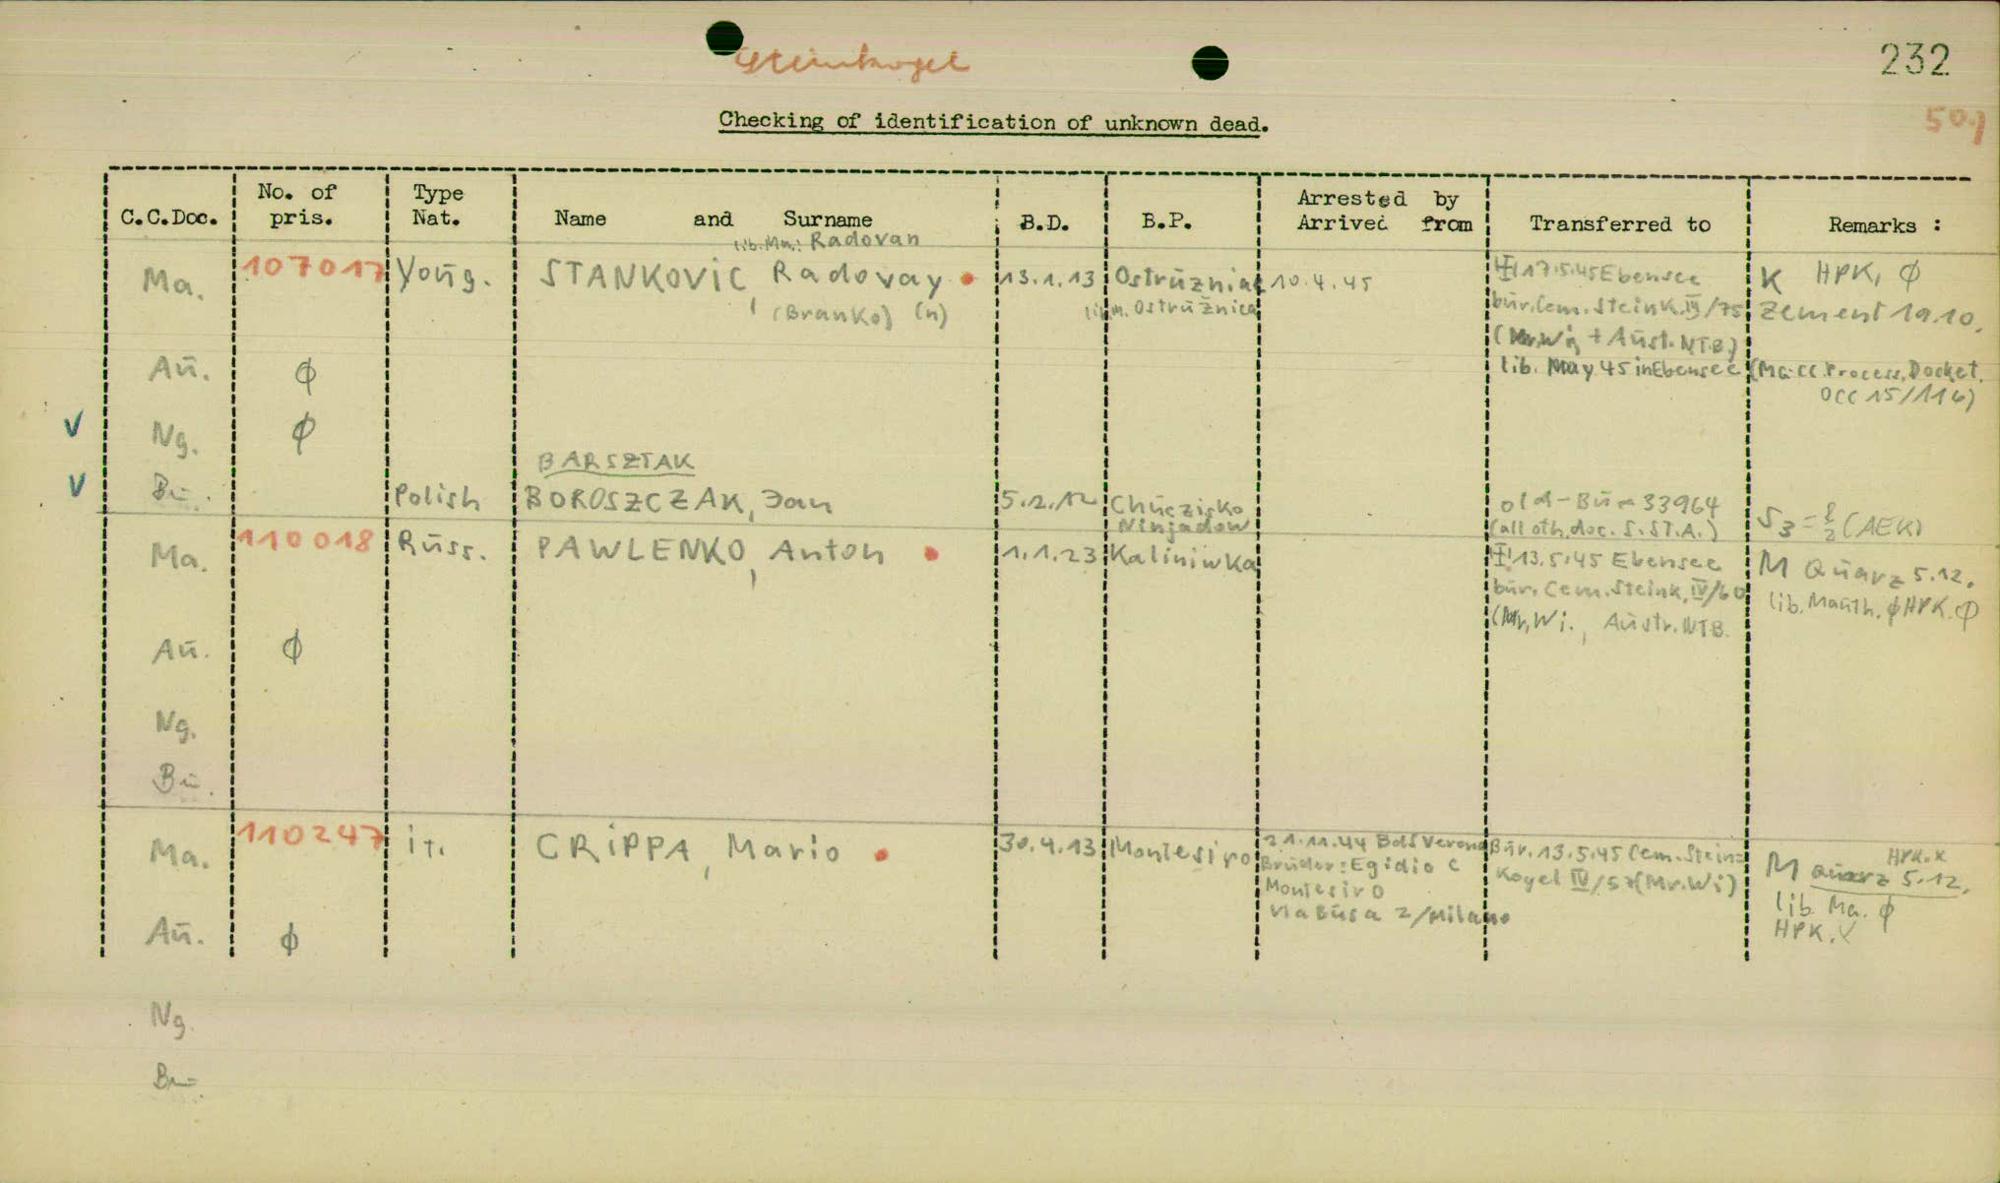 Steinkogel
232
Checking of identification of unknown dead.
50.)
C.C.Doc.
No. of pris.
Type Nat.
Name and Surname
B.D.
B.P.
Arrested by
Arrived from
Transferred to
Remarks :
lib. Ma.: Radovan
Ma. 107017 Yoūg. STANKOVIC, Radovay 13.1.13 Ostrūzniac 10.4.45
17.5.45 Ebensee
K HPK, φ
(Branko) (n)
lib. m. Ostrūžnica
būr. Cem. Steink. IV/75
Zement 19.10.
(Mr. Wi + Aūst. NTB)
Aū. φ
lib. May 45 in Ebensee (Ma: CC Process. Docket.
OCC 15/116)
V Ng. φ
BARSZTAK
V Bū. Polish BOROSZCZAK, Jan 5.2.12 Chūczisko
Ninjadow
old - Bū = 33964
(all oth. doc. S.ST.A.)
(AEK)
Ma. 110018 Rūss. PAWLENKO, Anton 1.1.23 Kaliniwka
13.5.45 Ebensee
M Qūarz 5.12.
būr. Cem. Steink. IV/60
lib. Maūth. φ HPK. φ
(Mr. Wi., Aūstr. NTB.
Aū. φ
Ng.
Bū.
Ma. 110247 it. CRiPPA, Mario 30.4.13 Montesiro
21.11.44 BdS Verona
Brūder: Egidio C
Montesiro
Via Būsa 2/Milano
Būr. 13.5.45 Cem. Stein=
Kogel IV/57 (Mr. Wi)
HPK. x
M Qūarz 5.12.
lib. Ma. φ
HPK. X
Aū. φ
Ng.
Bū.